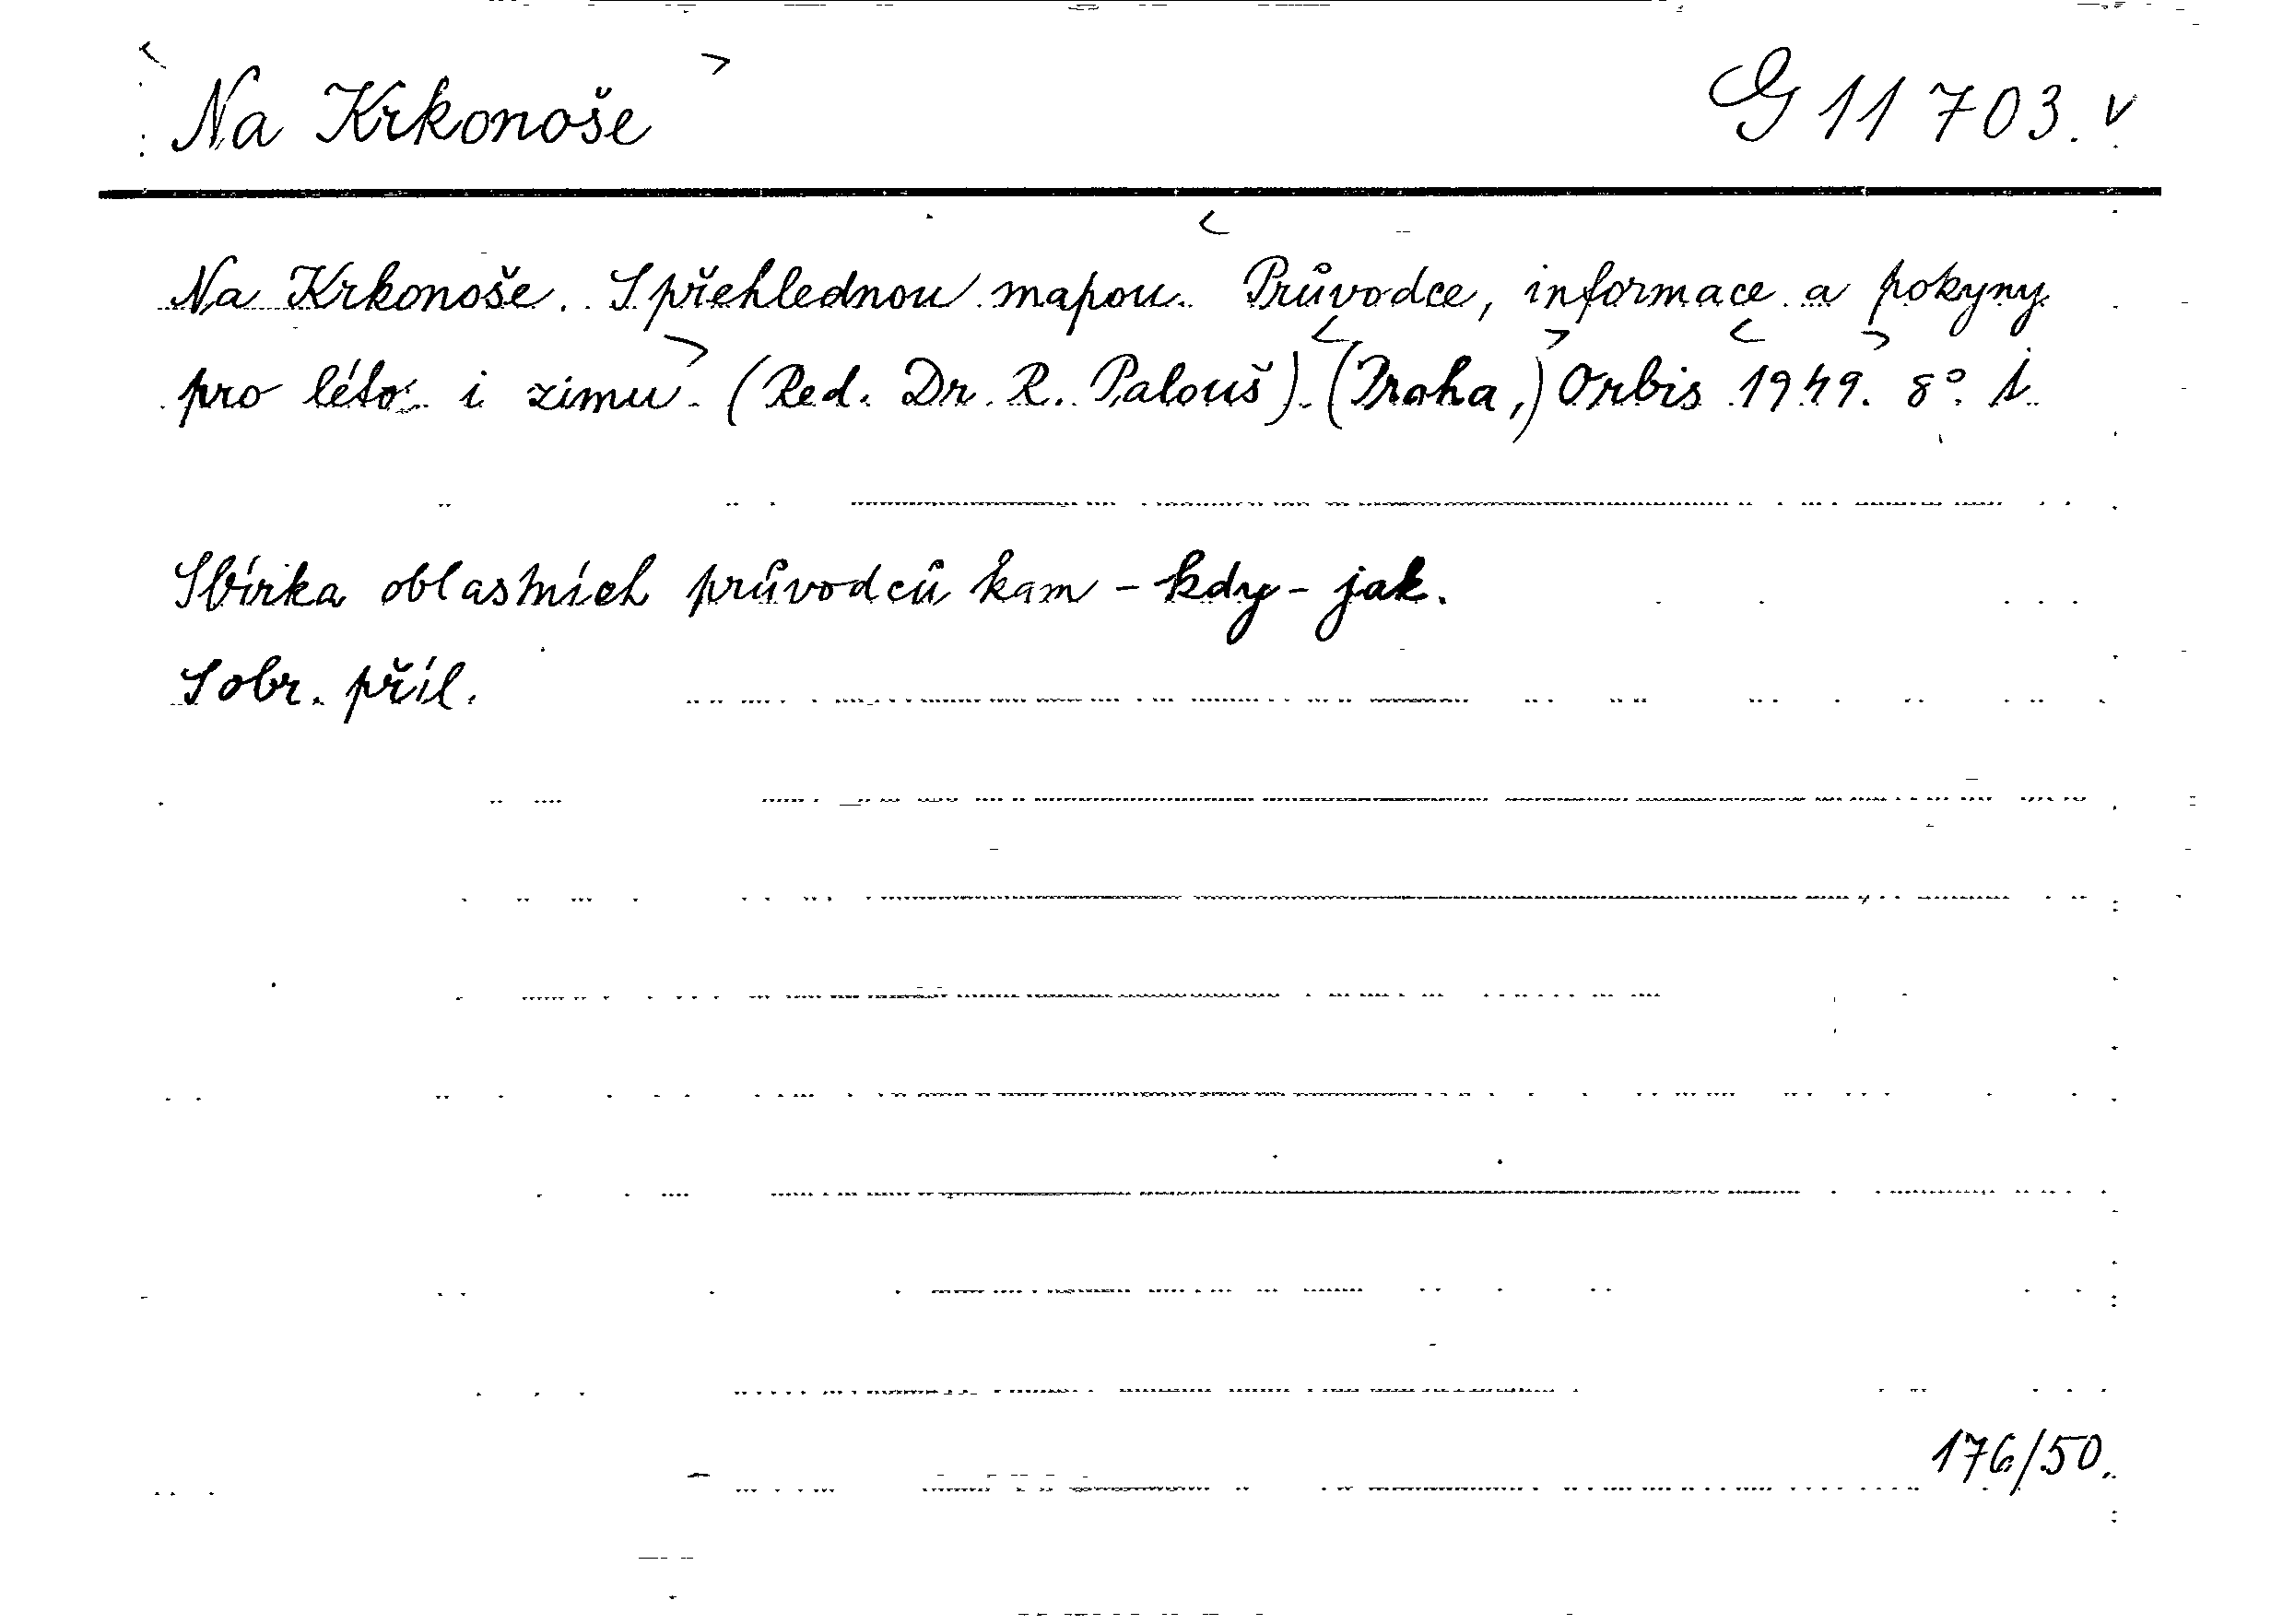 Na Krkonoše G 11 703. v
Na Krkonoše. S přehlednou mapou. Průvodce, informace a pokyny
pro léto i zimu. (Red. Dr. R. Palouš). (Praha,) Orbis 1949. 8°. 1.
Sbírka oblastních průvodců kam - kdy - jak.
S obr. příl.
176/50.